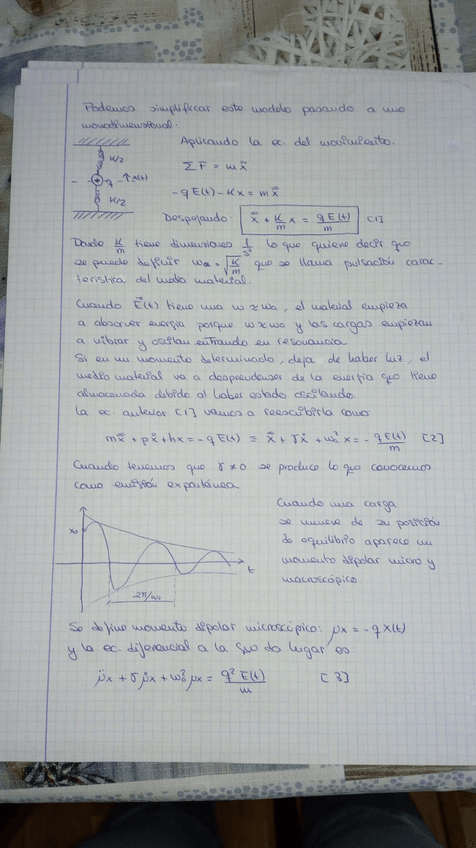 Podemos simplificar este modelo pasando a uno
monodimensional.
Aplicando la ec. del movimiento.
K/2
q
x(t)
K/2
Σ F̄ = mẍ
-qE(t) - Kx = mẍ
Despejando: ẍ + K/m x = qE(t)/m [1]
Donde K/m tiene dimensiones 1/s² lo que quiere decir que
se puede definir ω₀ = √K/m que se llama pulsación carac-
terística del medio material.
Cuando E⃗(t) tiene una ω ≈ ω₀, el material empieza
a absorver energía porque ω ≈ ω₀ y las cargas empiezan
a vibrar y oscilan entrando en resonancia.
Si en un momento determinado, deja de haber luz, el
medio material va a desprenderse de la energía que tiene
almacenada debido al haber estado oscilando.
La ec. anterior [1] vamos a reescribirla como:
mẍ + pẋ + hx = -qE(t) ≡ ẍ + γẋ + ω₀²x = - qE(t)/m [2]
Cuando tenemos que γ ≠ 0 se produce lo que conocemos
como emisión expontánea.
x₀
t
2π/ω₀
Cuando una carga
se mueve de su posición
de equilibrio aparece un
momento dipolar micro y
macroscópico.
Se define momento dipolar microscópico: μx = -qX(t)
y la ec. diferencial a la que da lugar es:
μ̈x + γμ̇x + ω₀²μx = q²E(t)/m [3]